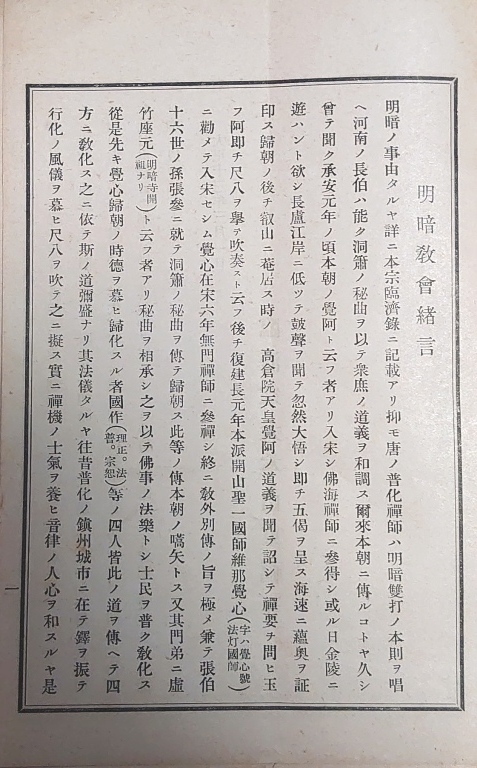 明暗敎會緒言
明暗ノ事由タルヤ詳ニ本宗臨濟錄ニ記載アリ抑モ唐ノ普化禪師ハ明暗雙打ノ本則ヲ唱
ヘ河南ノ長伯ハ能ク洞簫ノ秘曲ヲ以テ衆庶ノ道義ヲ和調ス爾來本朝ニ傳ルコトヤ久シ
曾テ聞ク承安元年ノ頃本朝ノ覺阿ト云フ者アリ入宋シ佛海禪師ニ參得シ或ル日金陵ニ
遊ハント欲シ長盧江岸ニ低ツテ鼓聲ヲ聞テ忽然大悟シ即チ五偈ヲ呈ス海速ニ蘊奥ヲ証
印ス歸朝ノ後チ叡山ニ菴居ス時ノ　高倉院天皇覺阿ノ道義ヲ聞テ詔シテ禪要チ問ヒ玉
フ阿即チ尺八ヲ擧テ吹奏スト云フ後チ復建長元年本派開山聖一國師維那覺心(字ハ覺心號法灯國師)
ニ勸メテ入宋セシム覺心在宋六年無門禪師ニ參禪シ終ニ敎外別傳ノ旨ヲ極メ兼テ張伯
十六世ノ孫張參ニ就テ洞簫ノ秘曲ヲ傳テ歸朝ス此等ノ傳本朝ノ嚆矢トス又其門弟ニ虛
竹座元(明暗寺開祖ナリ)ト云フ者アリ秘曲ヲ相承シ之ヲ以テ佛事ノ法樂トシ士民ヲ普ク敎化ス
從是先キ覺心歸朝ノ時德ヲ慕ヒ歸化スル者國作(理正。法普。宗恕)等ノ四人皆此ノ道ヲ傳ヘテ四
方ニ敎化ス之ニ依テ斯ノ道彌盛ナリ其法儀タルヤ往昔普化ノ鎭州城市ニ在テ鐸ヲ振テ
行化ノ風儀ヲ慕ヒ尺八ヲ吹テ之ニ擬ス實ニ禪機ノ士氣ヲ養ヒ音律ノ人心ヲ和スルヤ是
一